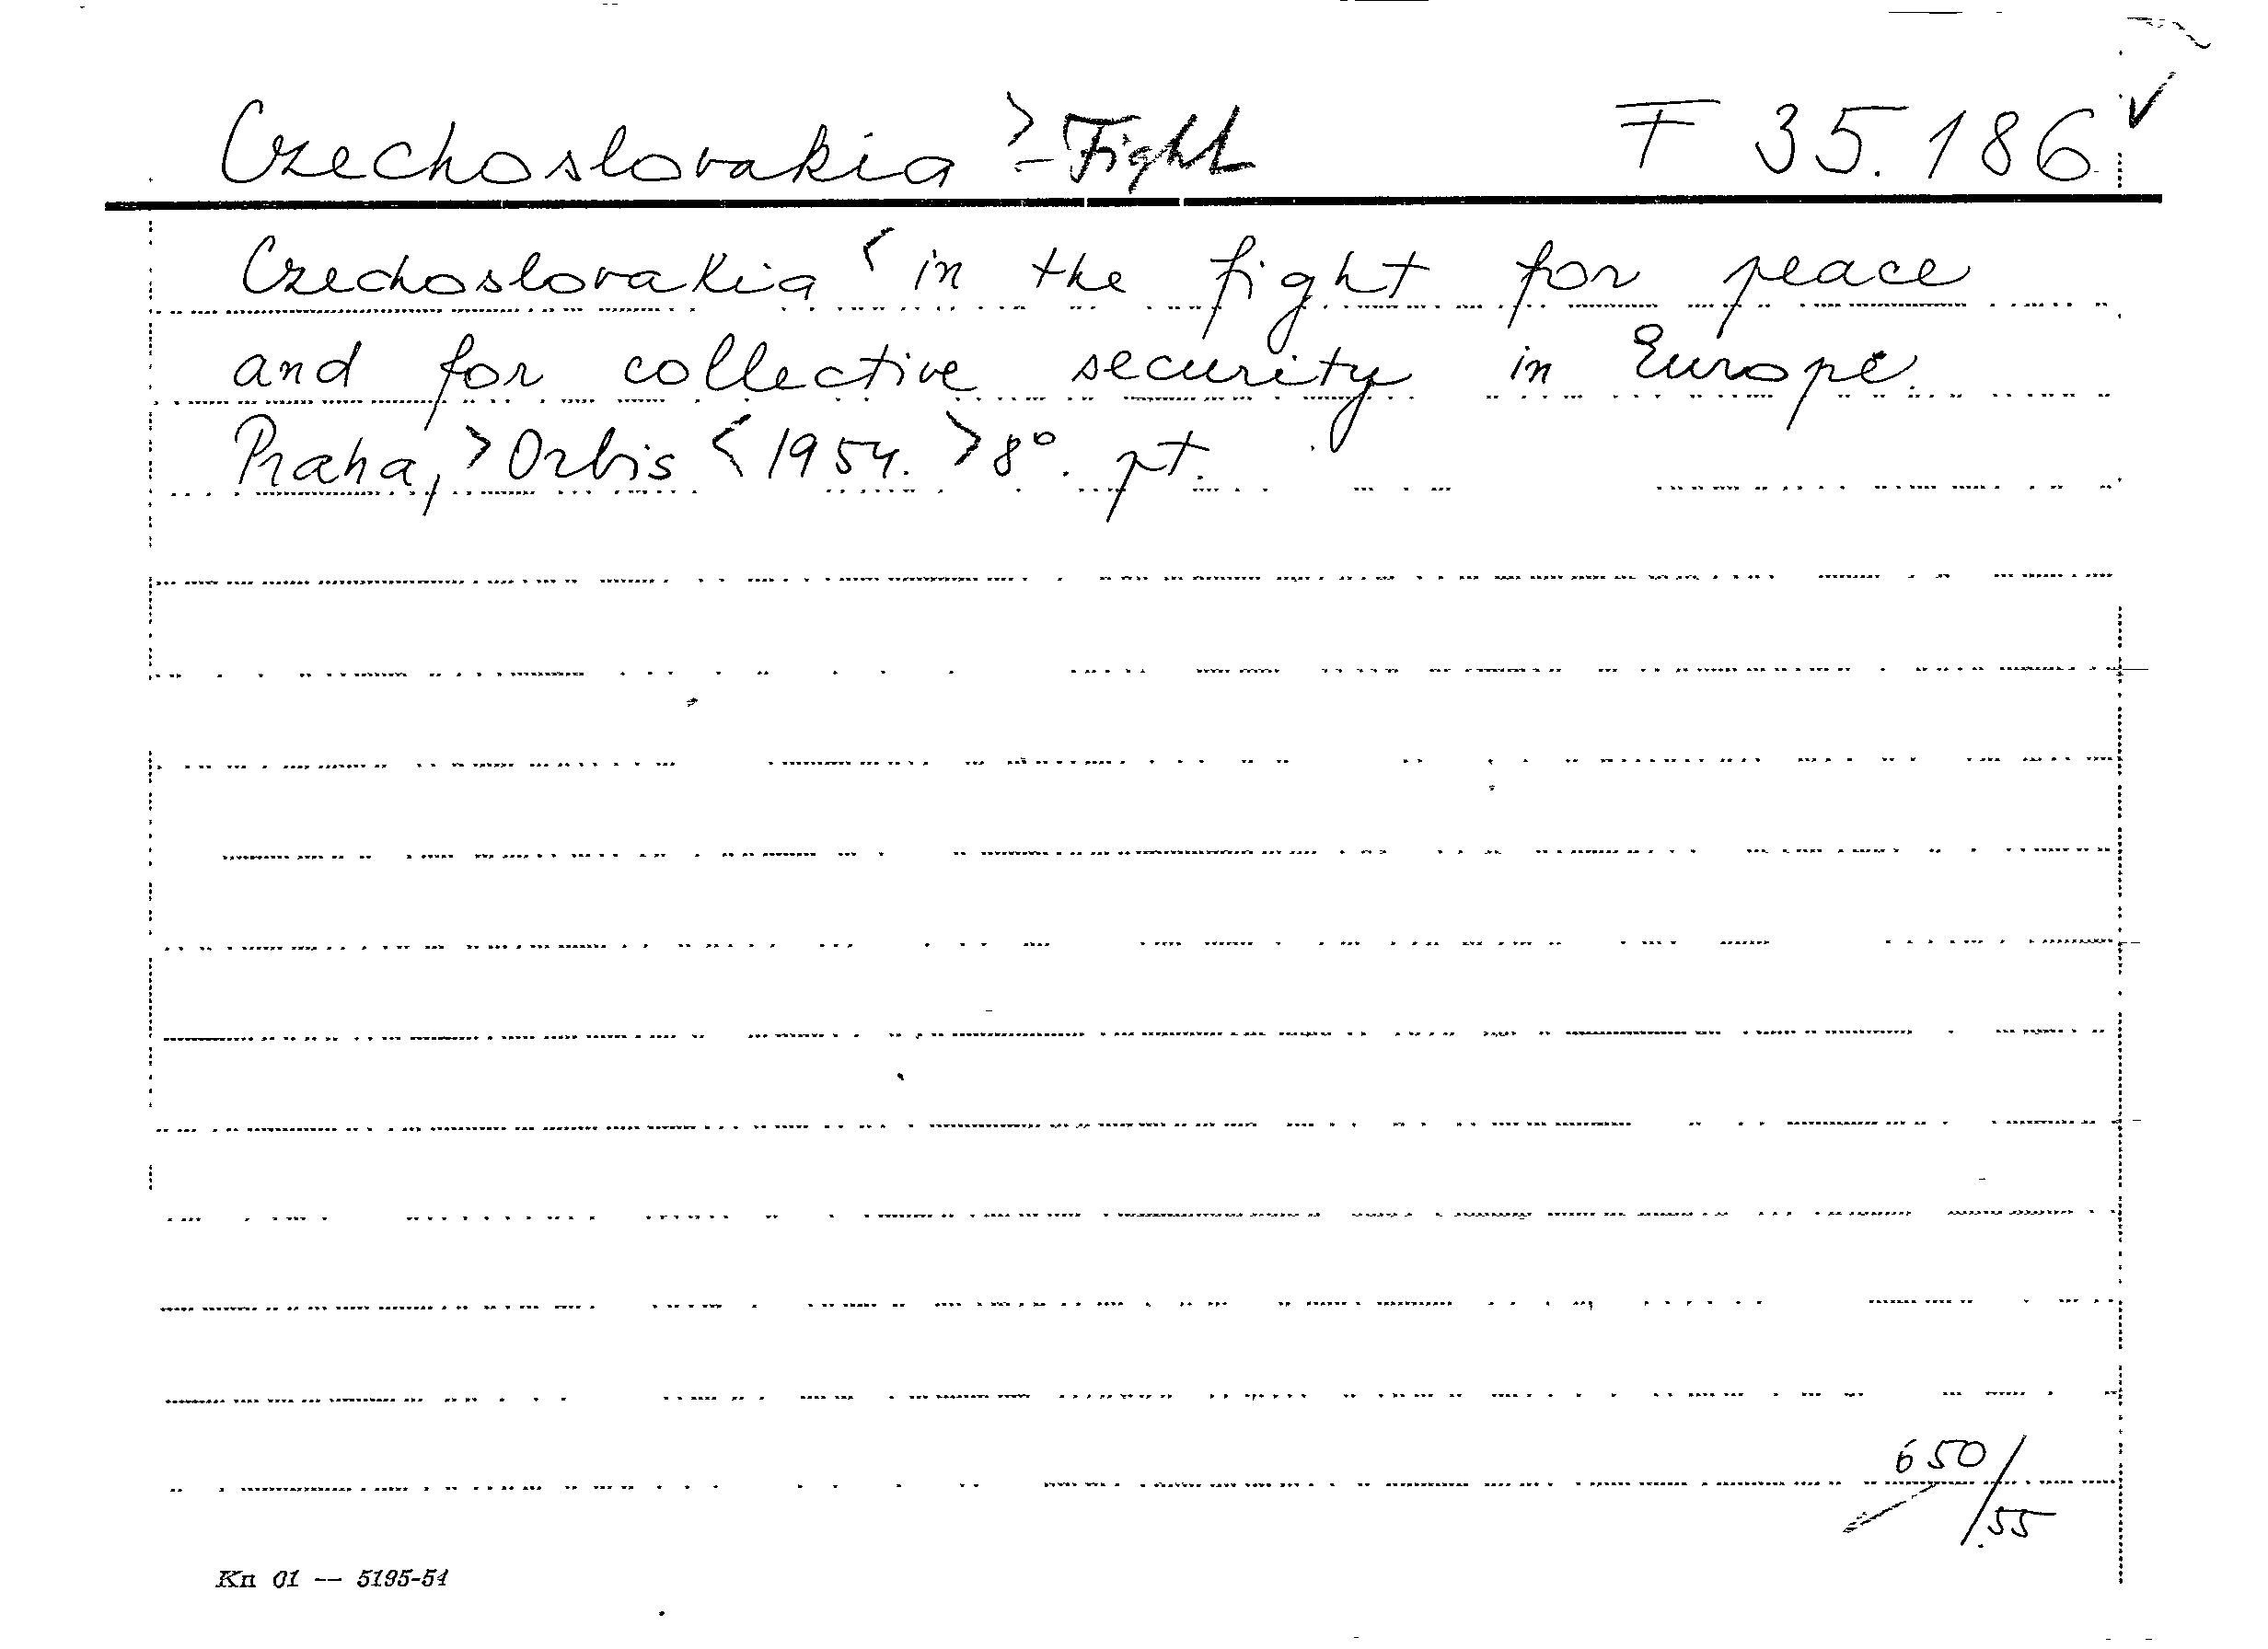 Czechoslovakia > - Fight F 35.186 ✓
Czechoslovakia < in the fight for peace
and for collective security in Europe.
Praha, > Orbis < 1954. > 8°. pt.
650/55
Kn 01 -- 5195-54